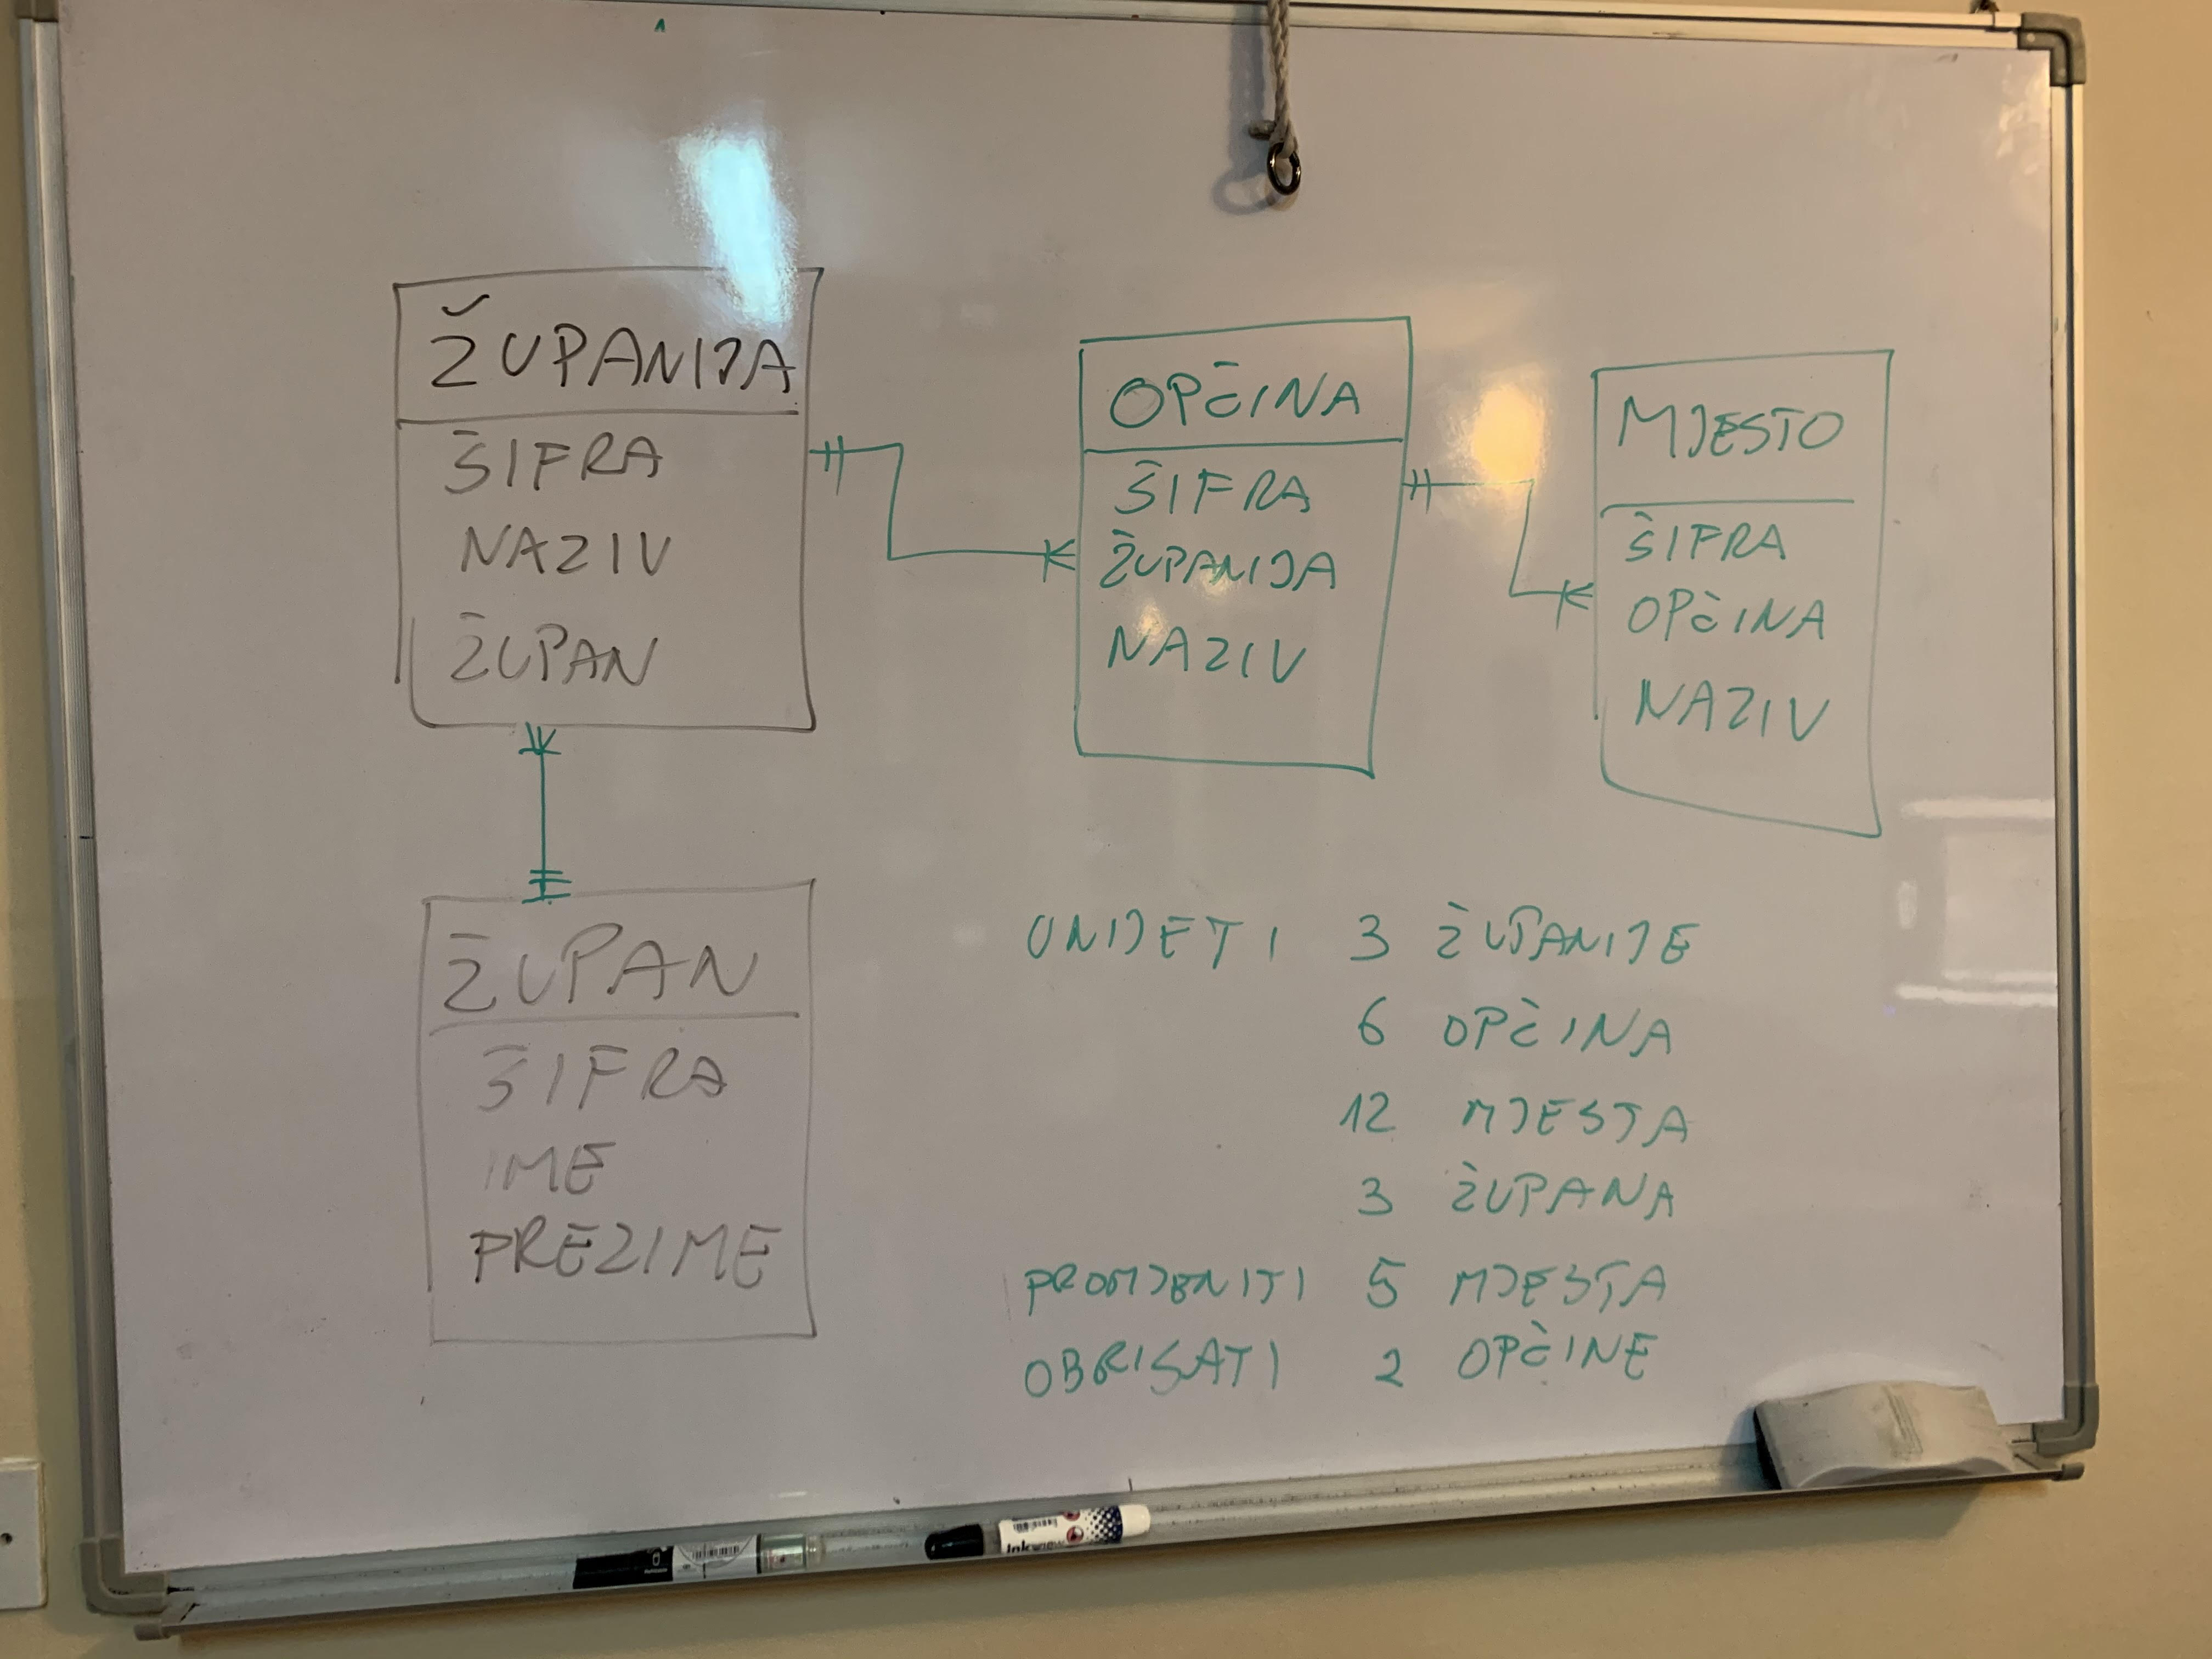 ŽUPANIJA
ŠIFRA
NAZIV
ŽUPAN
OPČINA
ŠIFRA
ŽUPANIJA
NAZIV
MJESTO
ŠIFRA
OPČINA
NAZIV
ŽUPAN
ŠIFRA
IME
PREZIME
UNIJETI 3 ŽUPANIJE
6 OPČINA
12 MJESTA
3 ŽUPANA
PROMJENITI 5 MJESTA
OBRISATI 2 OPČINE